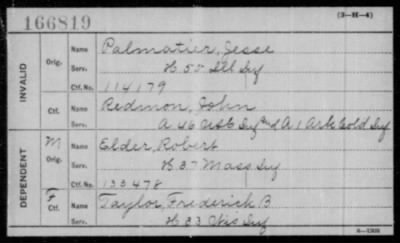 166819
(3-H-4)
INVALID
Orig.
Name Palmatier, Jesse
Serv. H 50 Ill Inf
Ctf. No. 114179
Ctf.
Name Redmon, John
Serv. A 46 US6 Inf and A 1 Ark Cold Inf
DEPENDENT
M
Orig.
Name Elder, Robert
Serv. H 37 Mass Inf
Ctf. No. 133478
F
Ctf.
Name Taylor, Frederick B
Serv. H 33 Wis Inf